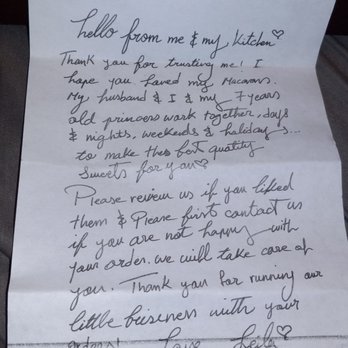 hello from me & my kitchen♡
Thank you for trusting me! I
hope you loved my Macarons.
My husband & I & my 7 years
old princess work together, days
& nights, weekends & holiday's...
to make the best quality
Sweets for you♡
Please review us if you liked
them & Please first contact us
if you are not happy with
your order. we will take care of
you. Thank you for running our
little business with your
orders! Love Leila♡